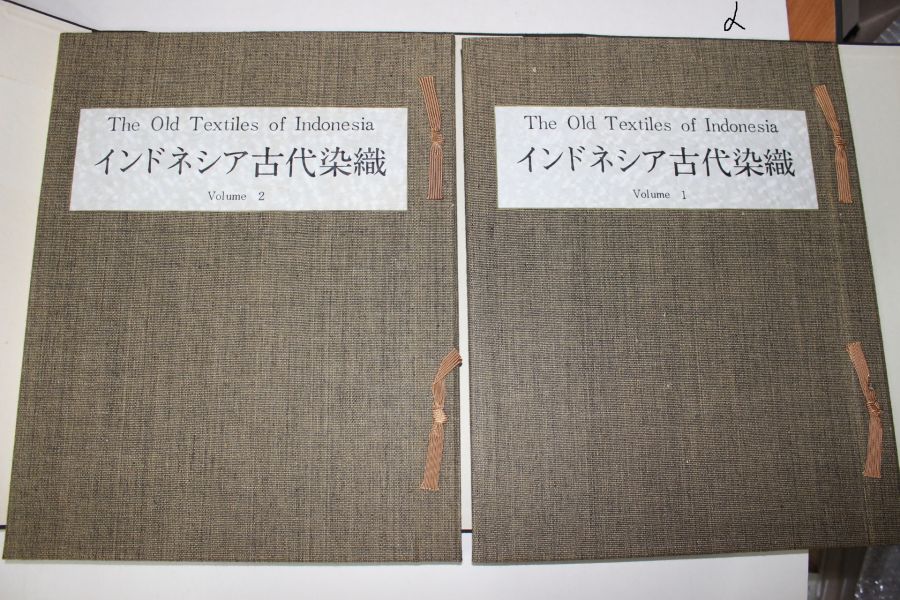 The Old Textiles of Indonesia
インドネシア古代染織
Volume 2
The Old Textiles of Indonesia
インドネシア古代染織
Volume 1